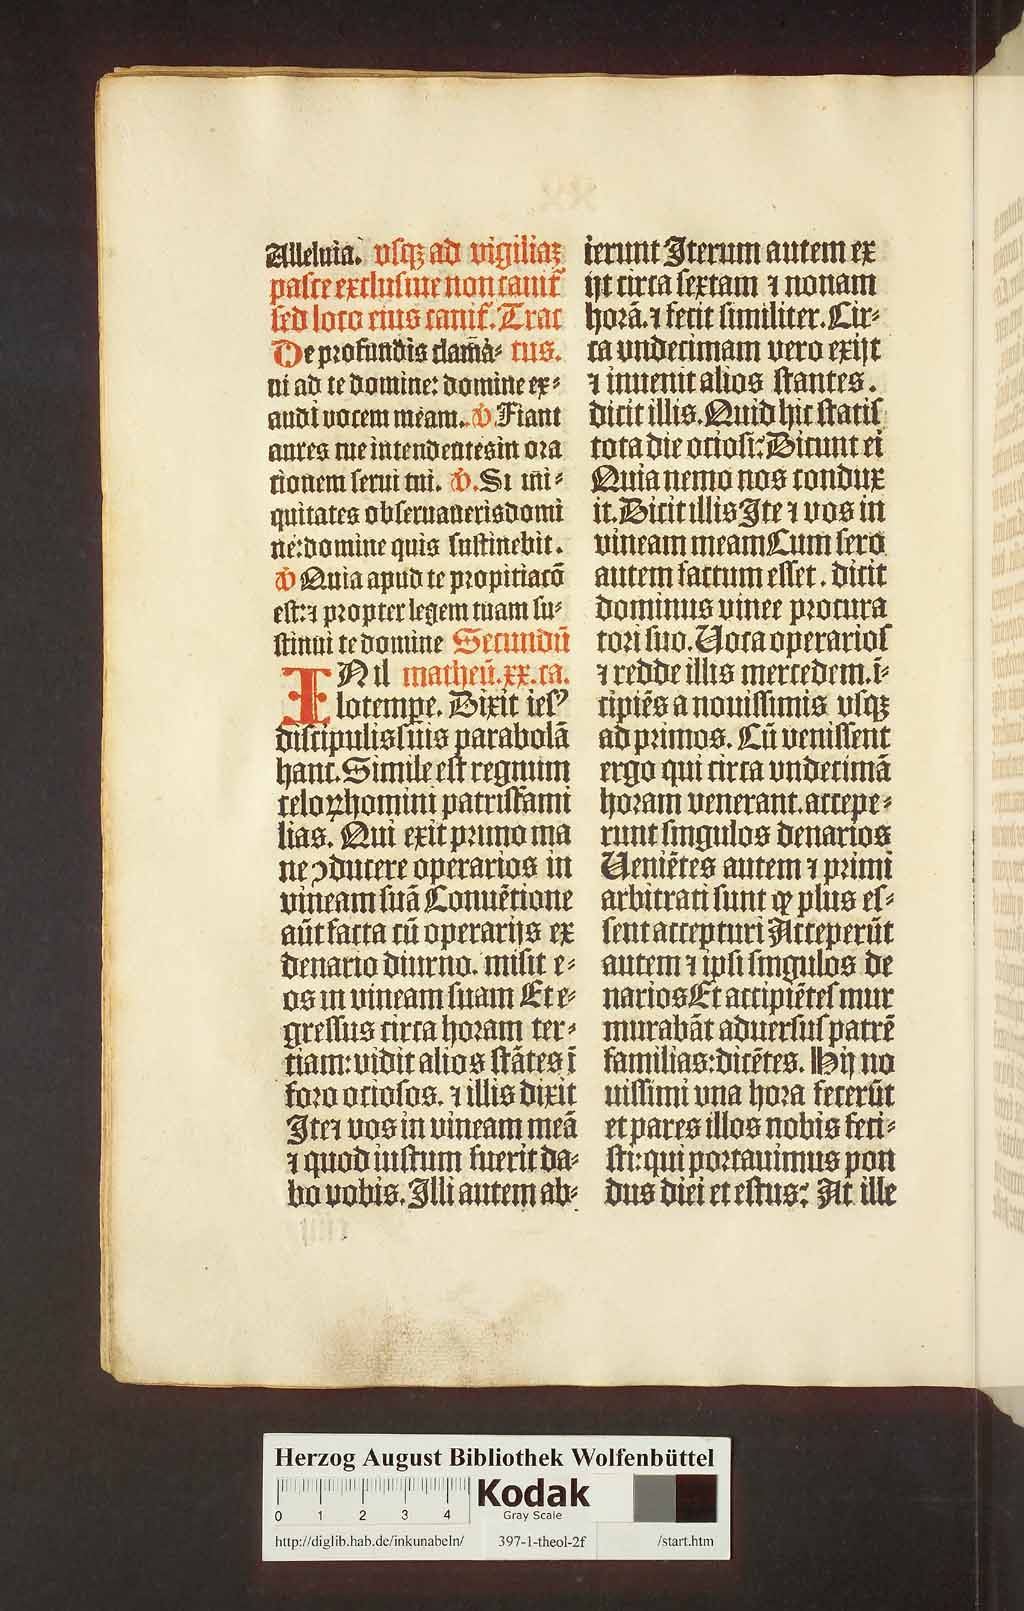 Alleluia. vsqꝫ ad vigiliaꝫ
pasce exclusiue non canit̄
sed loco eius canit̄. Trac
De profundis clama᷑⸗ tus.
ui ad te domine: domine ex⸗
audi vocem meam. ℣ Fiant
aures tue intendentes in ora
tionem serui tui. ℣. Si ini⸗
quitates obseruaueris domi
ne: domine quis sustinebit.
℣ Quia apud te propitiacō
est: ⁊ propter legem tuam su⸗
stinui te domine Secundū
IN il matheū. xx. ca.
lo tempe. Dixit iesꝰ
discipulis suis parabolā
hanc. Simile est regnum
celoꝝ homini patrisfami
lias. Qui exit primo ma
ne ↄducere operarios in
vineam suā Conuētione
aūt facta cū operarijs ex
denario diurno. misit e⸗
os in vineam suam Et e⸗
gressus circa horam ter⸗
tiam: vidit alios stātes ī
foro ociosos. ⁊ illis dixit
Ite ⁊ vos in vineam meā
⁊ quod iustum fuerit da⸗
bo vobis. Illi autem ab⸗
ierunt Iterum autem ex
ijt circa sextam ⁊ nonam
horā. ⁊ fecit similiter. Cir⸗
ca vndecimam vero exijt
⁊ inuenit alios stantes.
dicit illis. Quid hic statis
tota die ociosi: Dicunt ei
Quia nemo nos condux
it. Dicit illis Ite ⁊ vos in
vineam meam Cum sero
autem factum esset. dicit
dominus vinee procura
tori suo. Uoca operarios
⁊ redde illis mercedem. ī⸗
cipiēs a nouissimis vsqꝫ
ad primos. Cū venissent
ergo qui circa vndecimā
horam venerant. accepe⸗
runt singulos denarios
Ueniētes autem ⁊ primi
arbitrati sunt ꝙ plus es⸗
sent accepturi Acceperūt
autem ⁊ ipsi singulos de
narios Et accipiētes mur
murabāt aduersus patrē
familias: dicētes. Hij no
uissimi vna hora fecerūt
et pares illos nobis feci⸗
sti: qui portauimus pon
dus diei et estus: At ille
Herzog August Bibliothek Wolfenbüttel
0 1 2 3 4
Kodak
Gray Scale
http://diglib.hab.de/inkunabeln/ 397-1-theol-2f /start.htm